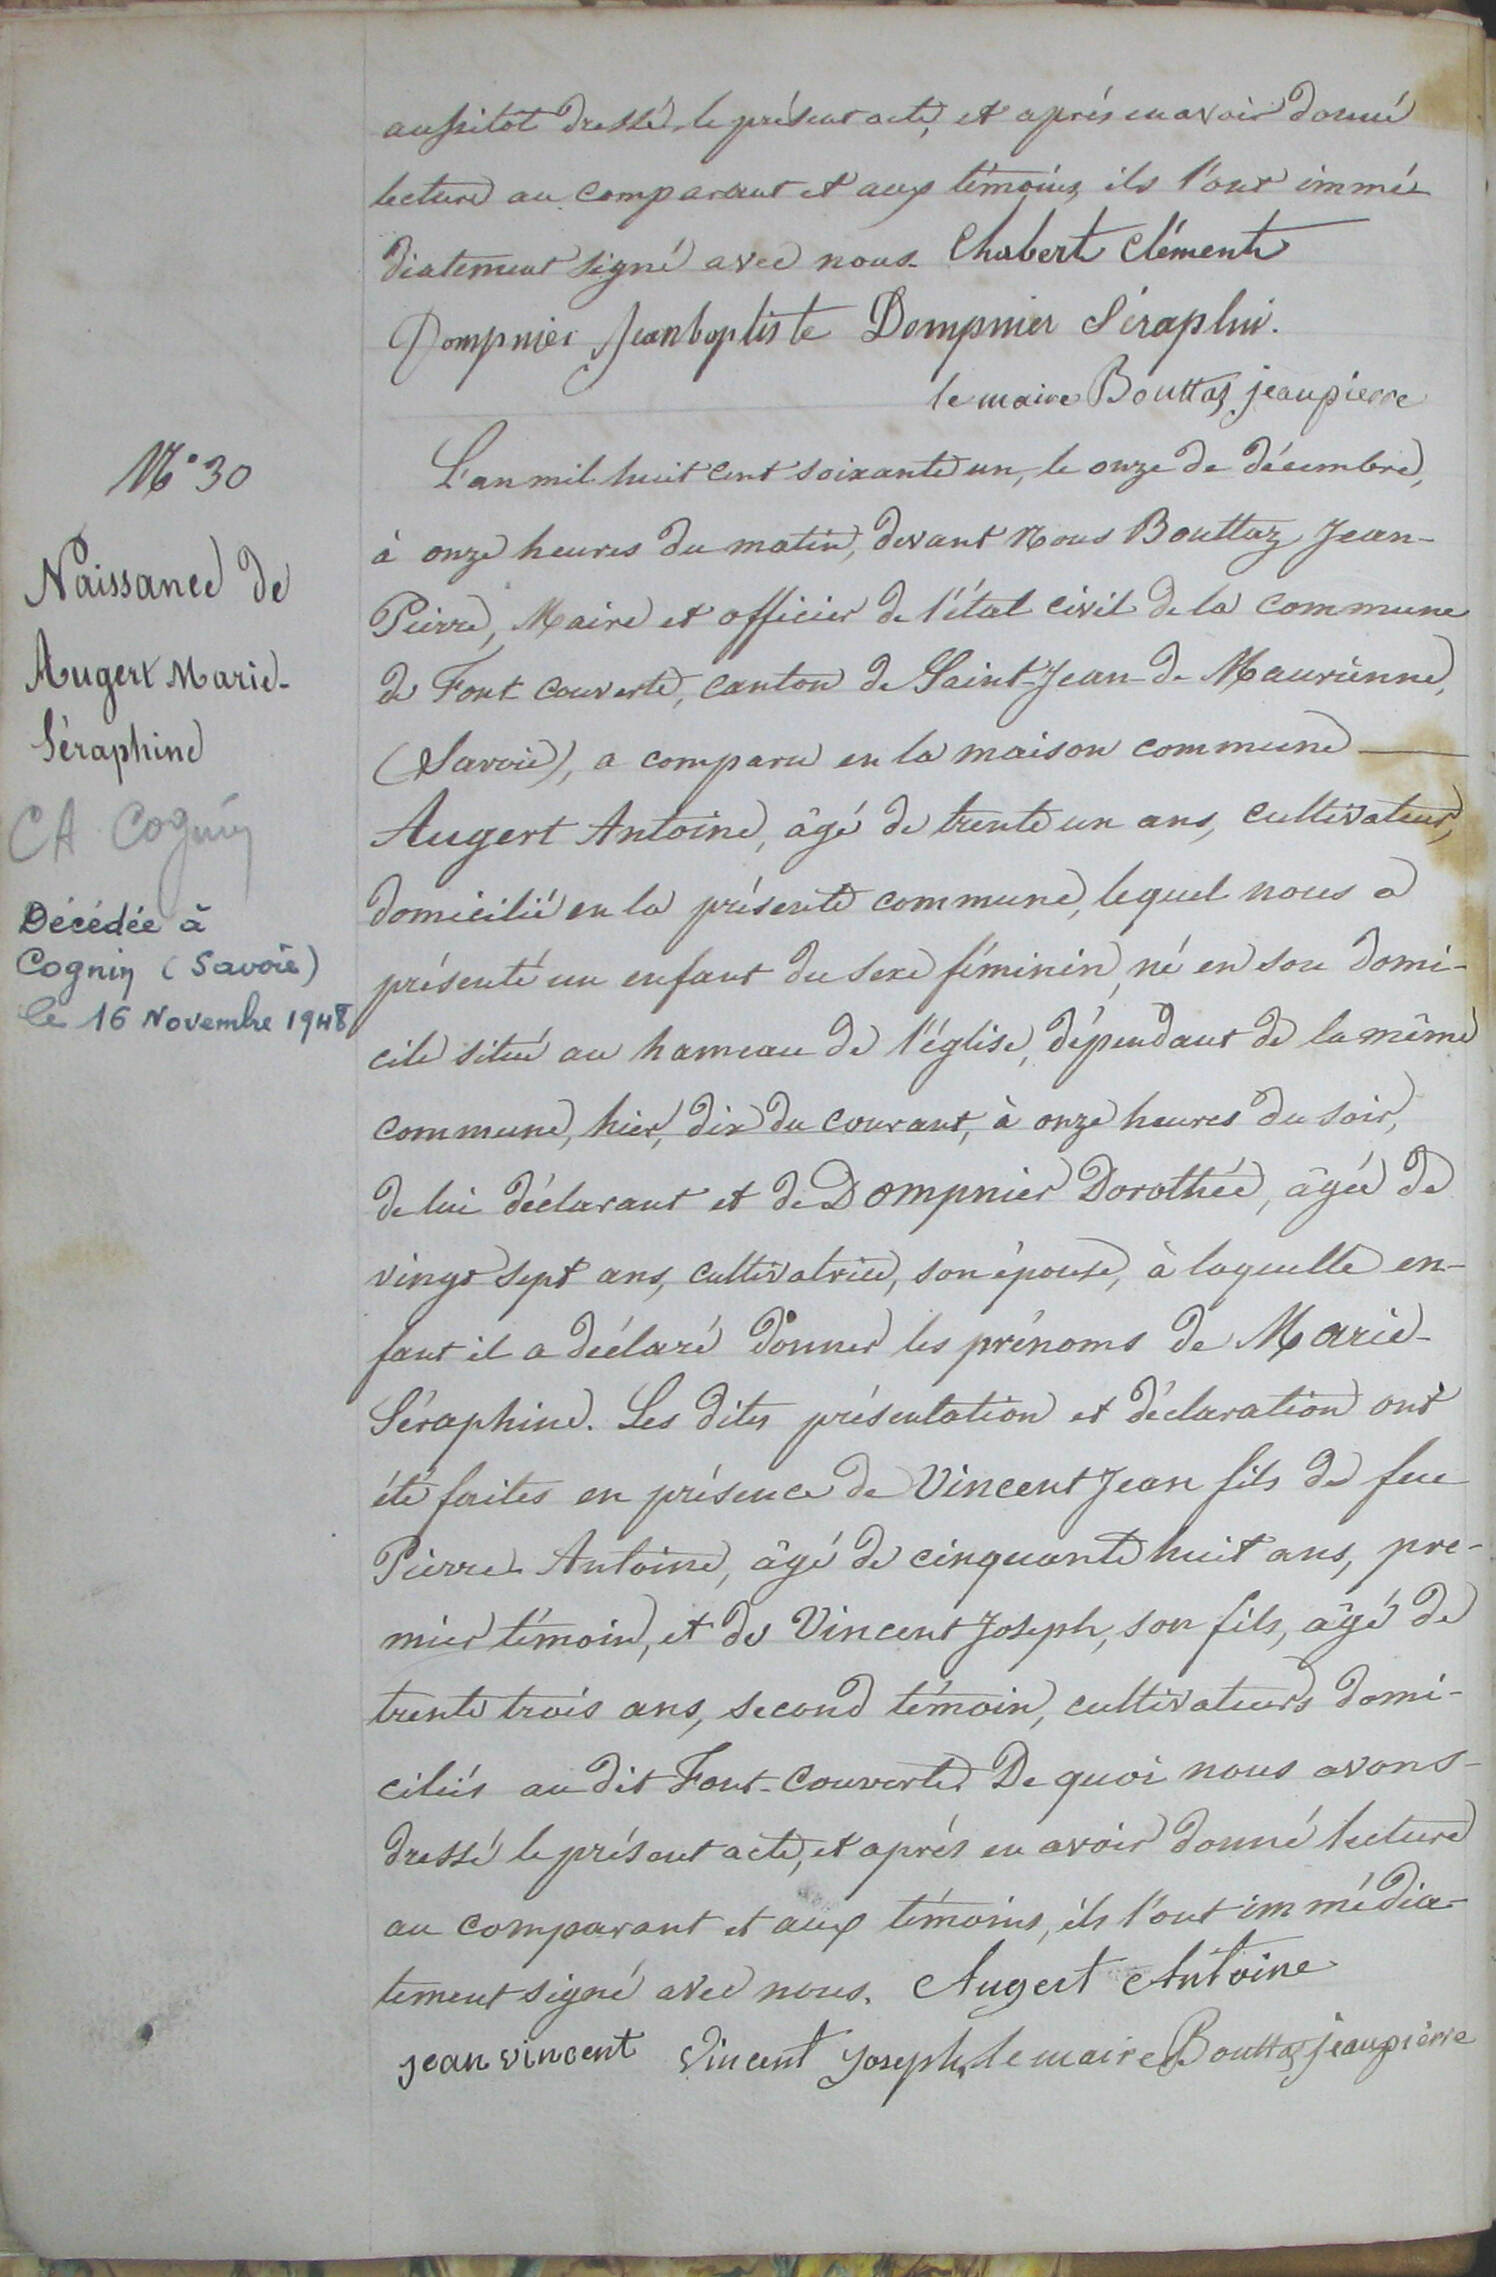 aussitôt dressé le présent acte, et après en avoir donné
lecture au comparant et aux témoins, ils l'ont immé
diatement signé avec nous. Chabert Clément
Dompnier Jeanbaptiste Dompnier Séraphin.
le maire Bouttaz jeanpierre
N° 30
Naissance de
Augert Marie-
Séraphine
CA Cognin
Décédée à
Cognin (Savoie)
le 16 Novembre 1948
L'an mil huit cent soixante un, le onze de décembre,
à onze heures du matin, devant Nous Bouttaz Jean-
Pierre, Maire et officier de l'état civil de la commune
de Font couverte, canton de Saint-Jean-de Maurienne,
(Savoie), a comparu en la maison commune —
Augert Antoine, âgé de trente un ans, cultivateur,
domicilié en la présente commune, lequel nous a
présenté un enfant du sexe féminin, né en son domi-
cile situé au hameau de l'église, dépendant de la même
commune, hier, dix du courant, à onze heures du soir,
de lui déclarant et de Dompnier Dorothée, âgée de
vingt sept ans, cultivatrice, son épouse, à laquelle en-
fant il a déclaré donner les prénoms de Marie-
Séraphine. Les dites présentation et déclaration ont
été faites en présence de Vincent Jean fils de feu
Pierre-Antoine, âgé de cinquante huit ans, pre-
mier témoin, et de Vincent Joseph, son fils, âgé de
trente trois ans, second témoin, cultivateurs domi-
ciliés au dit Font-couverte. De quoi nous avons-
dressé le présent acte, et après en avoir donné lecture
au comparant et aux témoins, ils l'ont immédia-
tement signé avec nous. Augert Antoine
jean vincent Vincent Joseph le maire Bouttaz jeanpierre